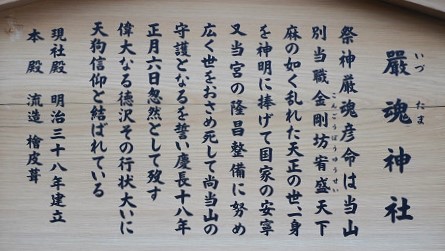 嚴魂神社
いづたま
祭神厳魂彦命は当山
別当職金剛坊宥盛天下
こんごうぼうゆうせい
麻の如く乱れた天正の世一身
を神明に捧げて国家の安寧
又当宮の隆昌整備に努め
広く世をおさめ死して尚当山の
守護となるを誓い慶長十八年
正月六日忽然として歿す
偉大なる徳沢その行状大いに
天狗信仰と結ばれている
現社殿 明治三十八年建立
本殿 流造 檜皮葺